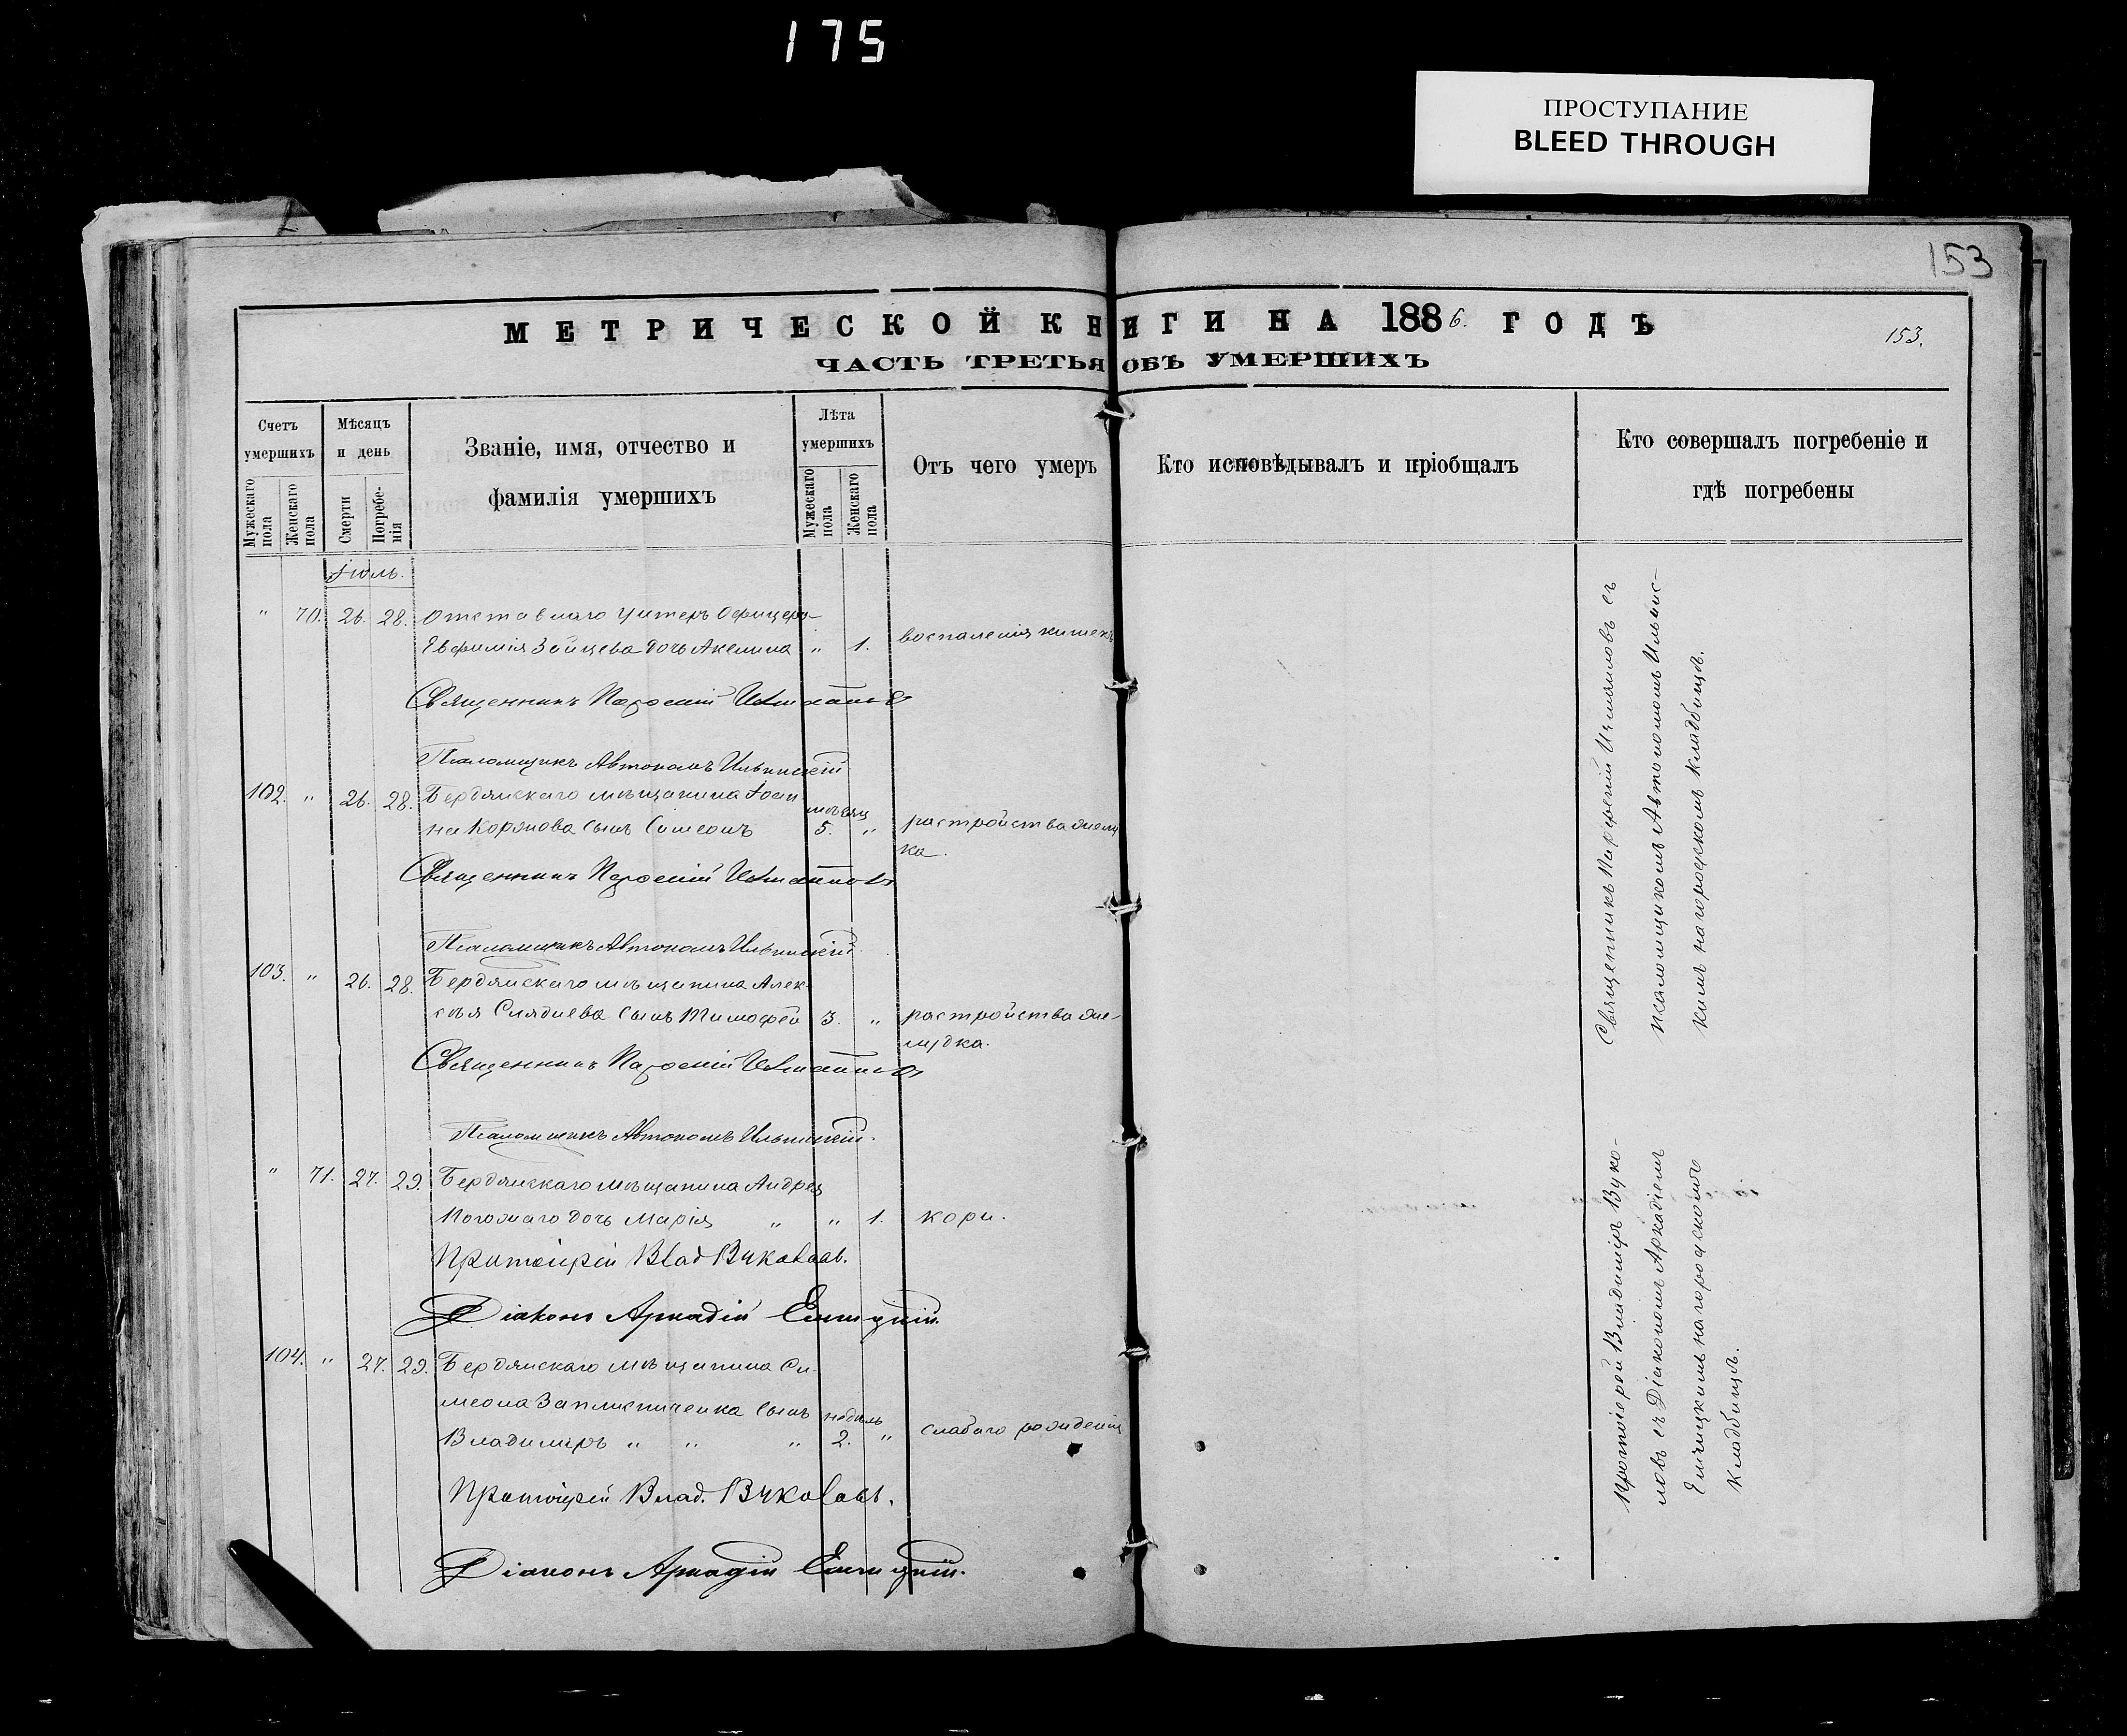 175
ПРОСТУПАНИЕ
BLEED THROUGH
153
МЕТРИЧЕСКОЙ КНИГИ НА 1886. ГОДЪ
153.
ЧАСТЬ ТРЕТЬЯ ОБЪ УМЕРШИХЪ
Счетъ умершихъ
Мужескаго пола
Женскаго пола
Мѣсяцъ и день
Смерти
Погребе-
нія
Званіе, имя, отчество и
фамилія умершихъ
Лѣта умершихъ
Мужескаго пола
Женскаго пола
Отъ чего умеръ
Кто исповѣдывалъ и пріобщалъ
Кто совершалъ погребеніе и
гдѣ погребены
Іюль.
" 70. 26. 28. Отставнаго Унтеръ Офицера
Евфимія Зайцева дочь Акелина " 1. воспаленія кишекъ
Священникъ Парѳеній
Псаломщикъ Автономъ Ильинскій
102. " 26. 28. Бердянскаго мѣщанина Іоан
на сынъ Симеонъ мѣсяц 5. " растройства желуд
ка.
Священникъ Парѳеній
Псаломщикъ Автономъ Ильинскій
103. " 26. 28. Бердянскаго мѣщанина Алек-
сѣя сынъ Тимофей 3. " растройства же-
лудка.
Священникъ Парѳеній
Псаломщикъ Автономъ Ильинскій.
" 71. 27. 29. Бердянскаго мѣщанина Андрея
дочь Марія " " 1. кори.
Протоіерей Влад. Вуколовъ.
Діаконъ Аркадій
104. " 27. 29. Бердянскаго мѣщанина Си-
меона сынъ недѣль
Владиміръ " " " 2. " слабаго рожденія
Протоіерей Влад. Вуколовъ.
Діаконъ Аркадій
Священникъ Парѳеній съ
псаломщикомъ Автономомъ Ильинс-
кимъ на городскомъ кладбищѣ.
Протоіерей Владиміръ Вуко-
ловъ съ Діакономъ Аркадіемъ
на городскомъ
кладбищѣ.